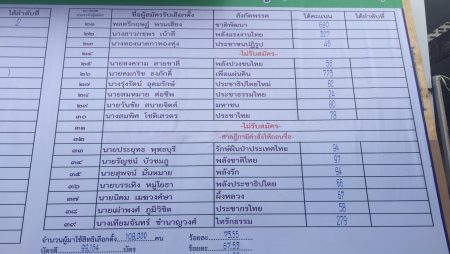 ได้ลำดับที่ ชื่อผู้สมัครรับเลือกตั้ง สังกัดพรรค ได้คะแนน ได้ลำดับที่
2
๒๑ พลตรีฤษฎิ์ พรมเสียง ชาติพัฒนา 680
๒๒ นางสาวกชพร เบ้าสี พลังแรงงานไทย 327
๒๓ นางทองนาคกาทองทุ่ง ประชาชนปฏิรูป 45
๒๔ -ไม่รับสมัคร-
๒๕ นายสงคราม สายชาลี พลังปวงชนไทย 58
๒๖ นายคมกริช ธงภักดิ์ เพื่อแผ่นดิน 773
๒๗ นายรุ่งรัตน์ อุตมรักษ์ ประชาธิปไตยใหม่ 82
๒๘ นายสมหมาย ต่อชีพ ประชาธรรมไทย 74
๒๙ นายวันชัย สบายจิตต์ มหาชน 80
๓๐ นายสมพิศ โชติเสวตร ประชาไทย 78
๓๑ -ไม่รับสมัคร-
๓๒ -ศาลฎีกามีคำสั่งให้ถอนชื่อ-
๓๓ นายประยุทธ พุทธบุรี รักษ์ผืนป่าประเทศไทย 94
๓๔ นายรัญชน์ บัวชมภู พลังชาติไทย 97
๓๕ นายสุพจน์ มั่นหมาย พลังรัก 94
๓๖ นายบรรเทิง หมู่โยธา พลังประชาธิปไตย 66
๓๗ นายนิคม เมฆวงศ์ษา ผึ้งหลวง 67
๓๘ นายเผ่าพงศ์ ภูมิวิชิต ประชากรไทย 58
๓๙ นางเทียมจันทร์ ชำนาญวงศ์ ไทรักธรรม 279
จำนวนผู้มาใช้สิทธิเลือกตั้ง คน ร้อยละ
บัตรดี บัตร ร้อยละ